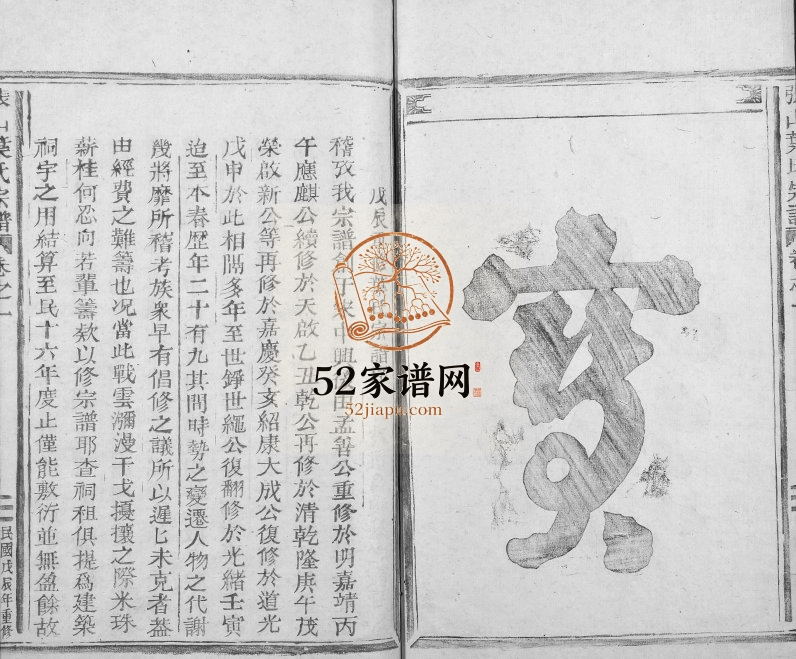 寶
葉氏宗譜
卷之一
戊辰
稽攷我宗譜創
宋中興
田孟
公重修於明嘉靖丙
午應麒公續修於天啟乙丑乾公再修於清乾隆庚午茂
榮啟新公等再修於嘉慶癸亥紹康大成公復修於道光
戊申於此相隔多年至世錚世繩公復翻修於光緒壬寅
迨至本春歷年二十有九其間時勢之變遷人物之代謝
幾將靡所稽考族衆早有倡修之議所以遲匕未克者蓋
由經費之難籌也況當此戰雲瀰漫干戈擾攘之際米珠
薪桂何忍向若輩籌欵以修宗譜耶查祠租俱提爲建築
祠宇之用結算至民十六年度止僅能敷衍並無盈餘故
山葉氏宗譜
卷之一
民國戊辰年重修
52家谱网
52jiapu.com